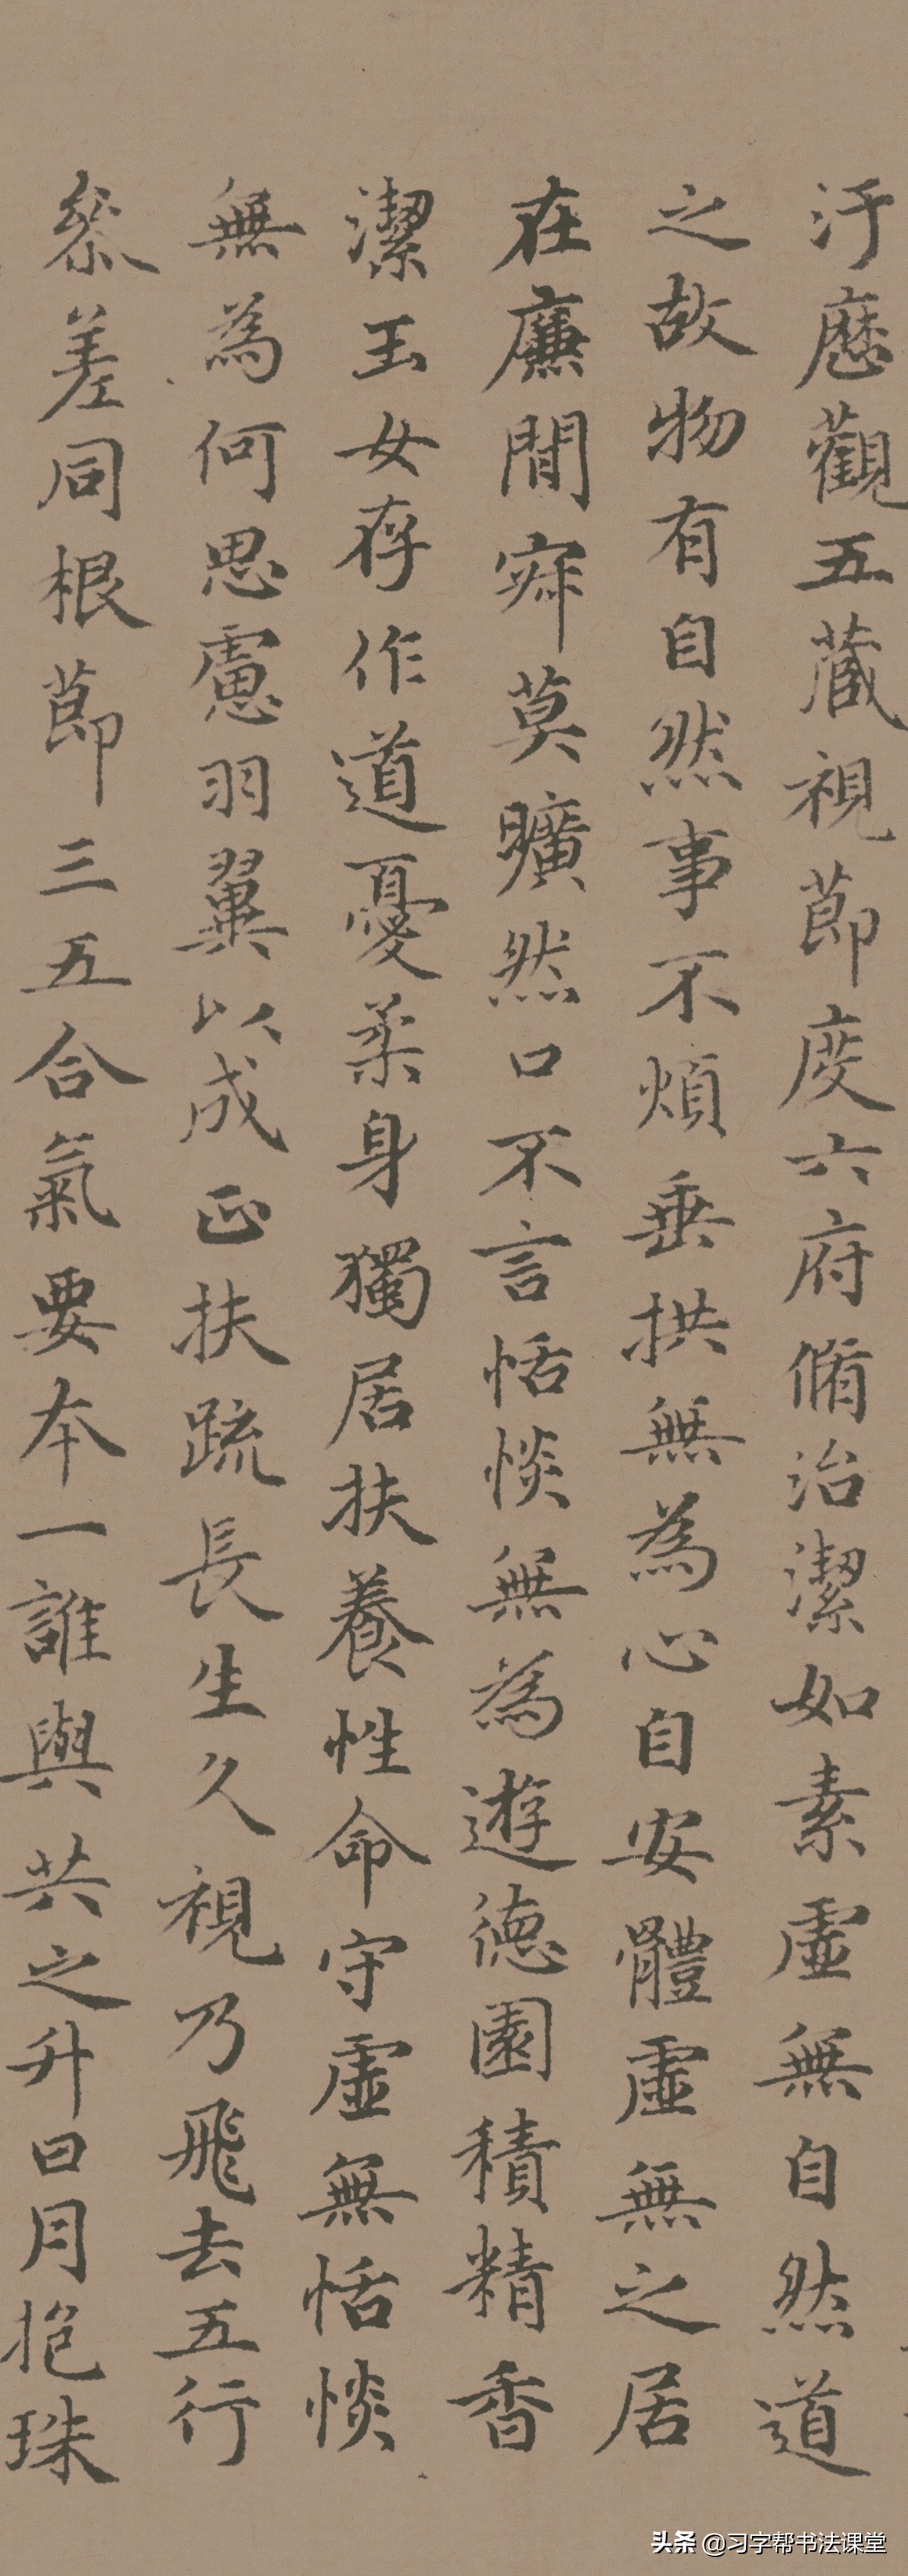 汙歷觀五藏視節度六府脩治潔如素虛無自然道
之故物有自然事不煩垂拱無為心自安體虛無之居
在廉間寂莫曠然口不言恬惔無為遊德園積精香
潔玉女存作道憂柔身獨居扶養性命守虛無恬惔
無為何思慮羽翼以成正扶疏長生久視乃飛去五行
參差同根節三五合氣要本一誰與共之升日月抱珠
头条 @习字帮书法课堂